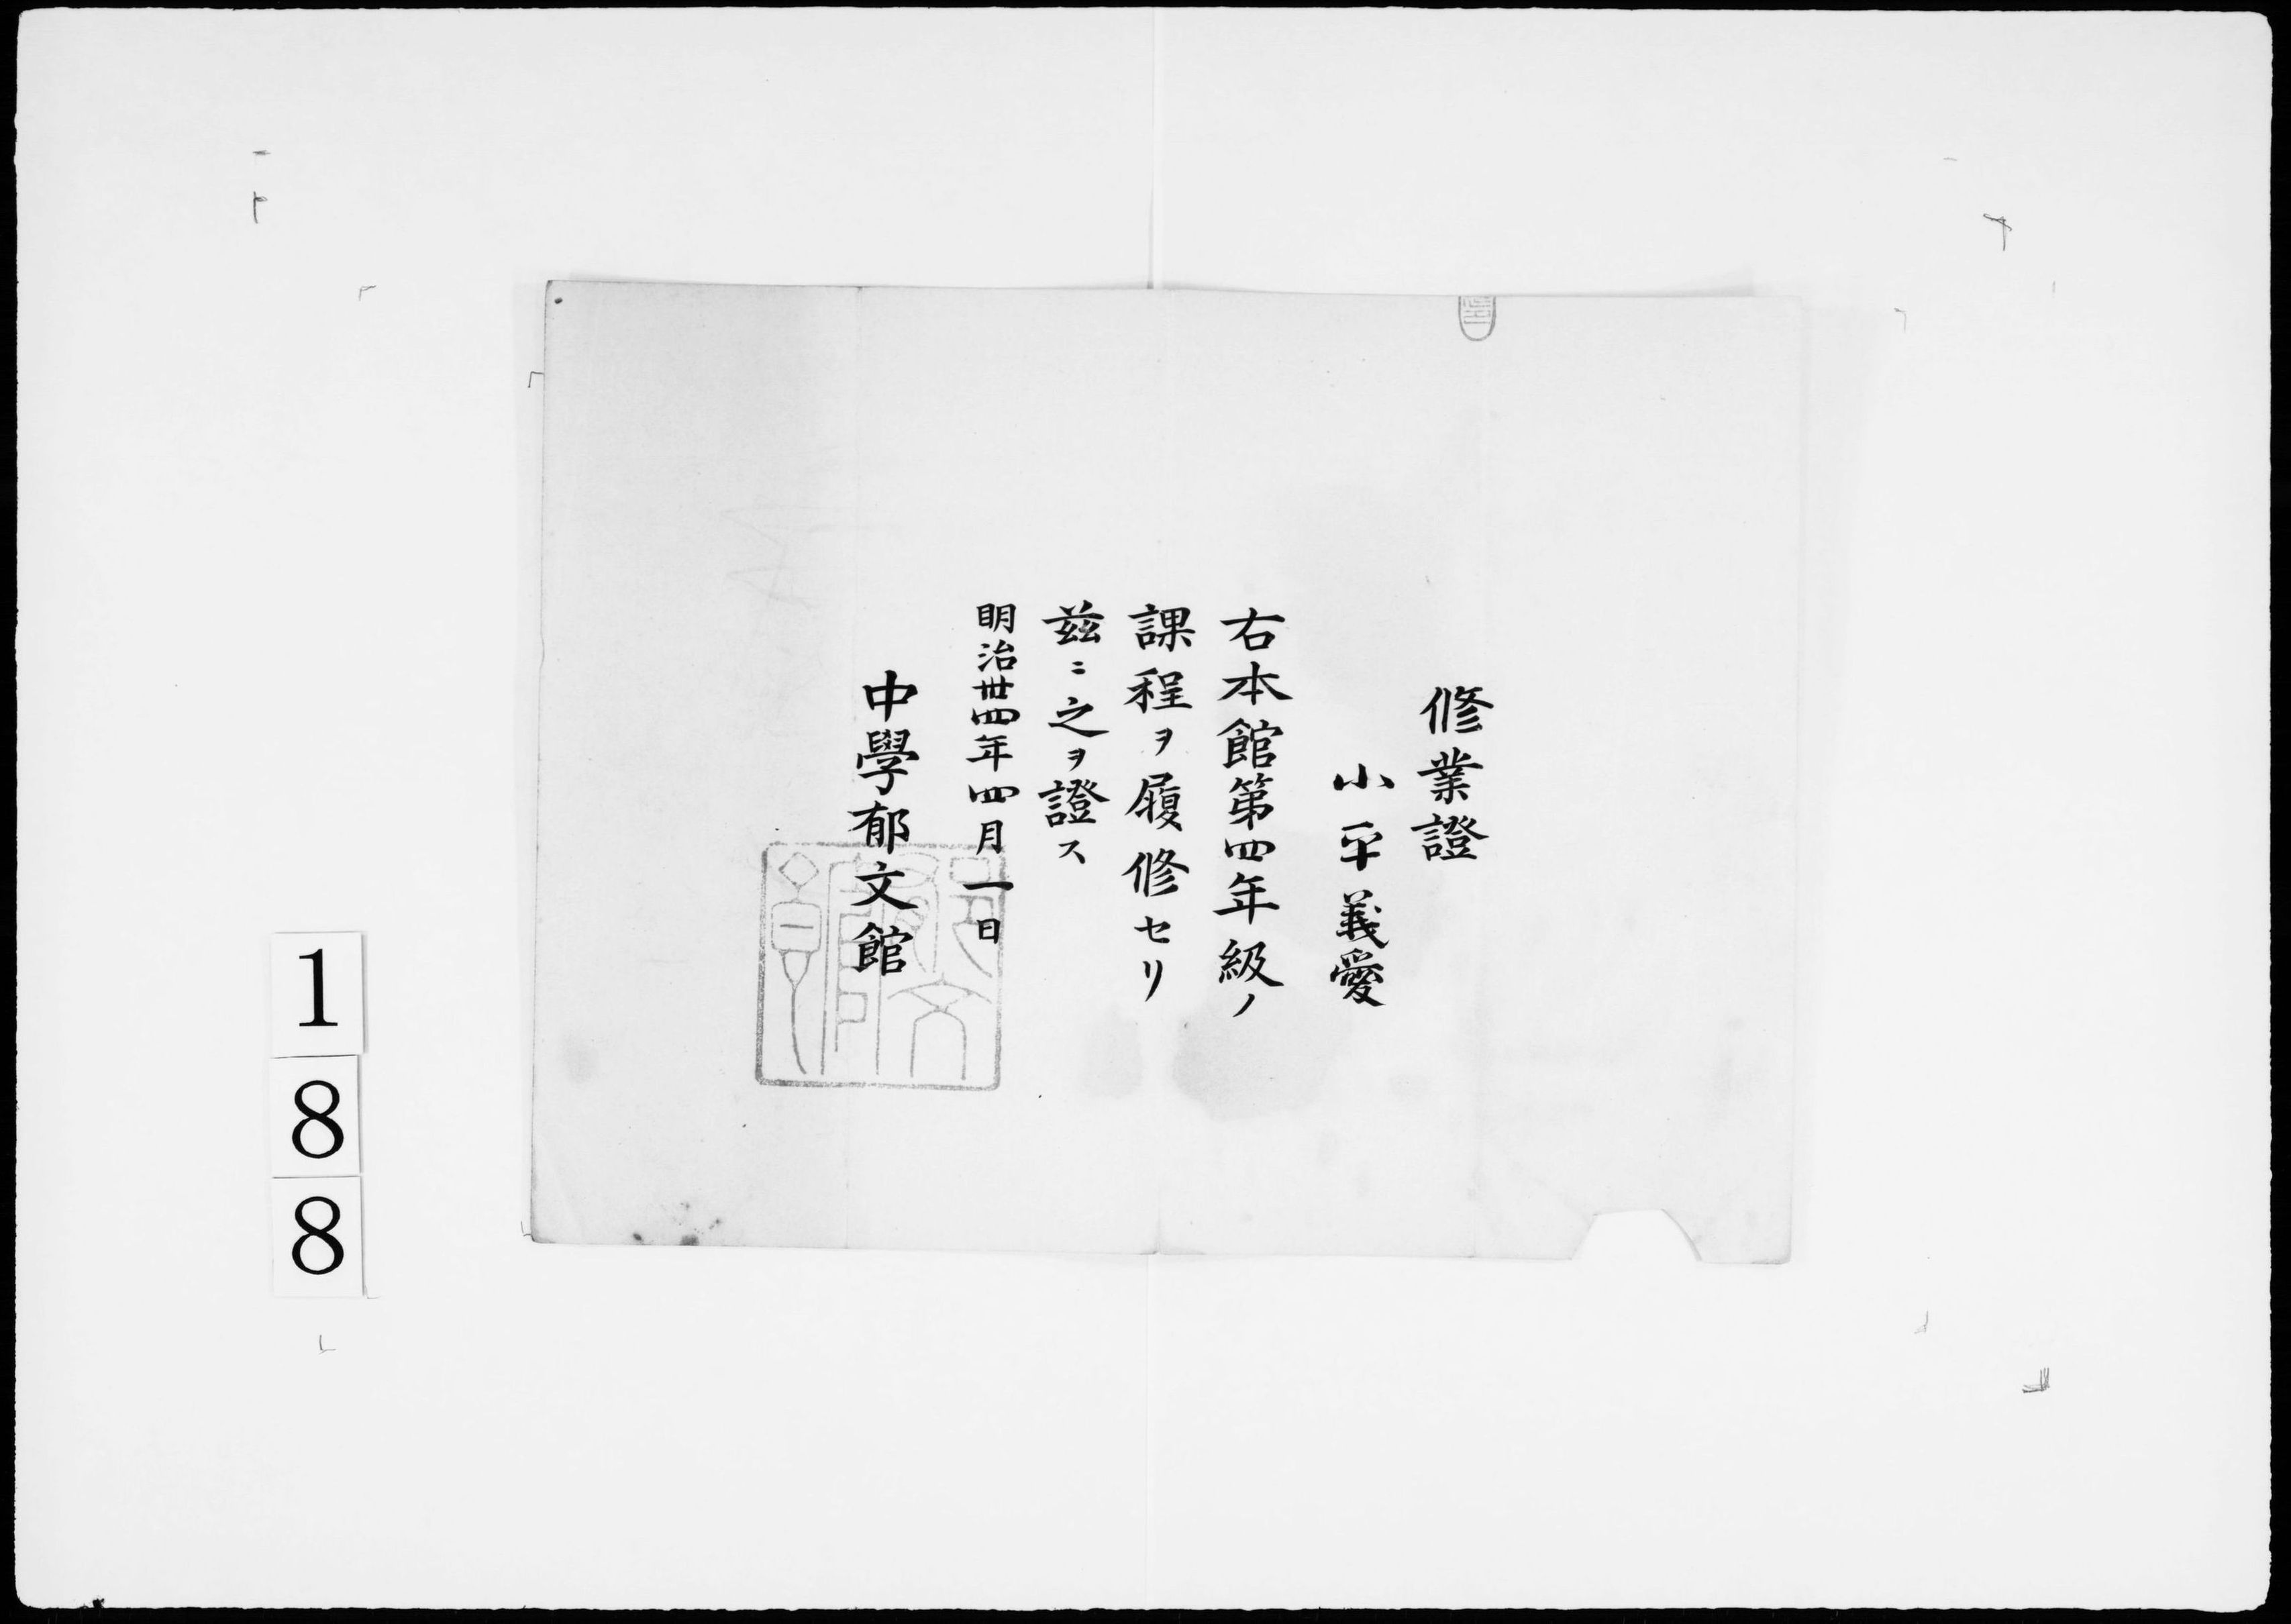 修業證
小平義愛
右本館第四年級ノ
課程ヲ履修セリ
茲ニ之ヲ證ス
明治丗四年四月一日
中學郁文館
188